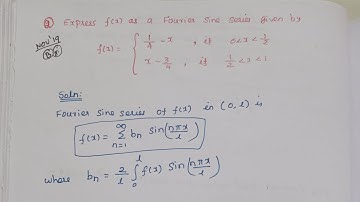 ② Express f(x) as a Fourier Sine series given by
NOV'19
f(x) = { 1/4 - x , if 0<x<1/2
x - 3/4 , if 1/2<x<1
Soln:
Fourier Sine series of f(x) in (0, l) is
f(x) = ∞∑n=1 bn Sin(nπx/l)
where bn = 2/l ∫0^l f(x) Sin(nπx/l)